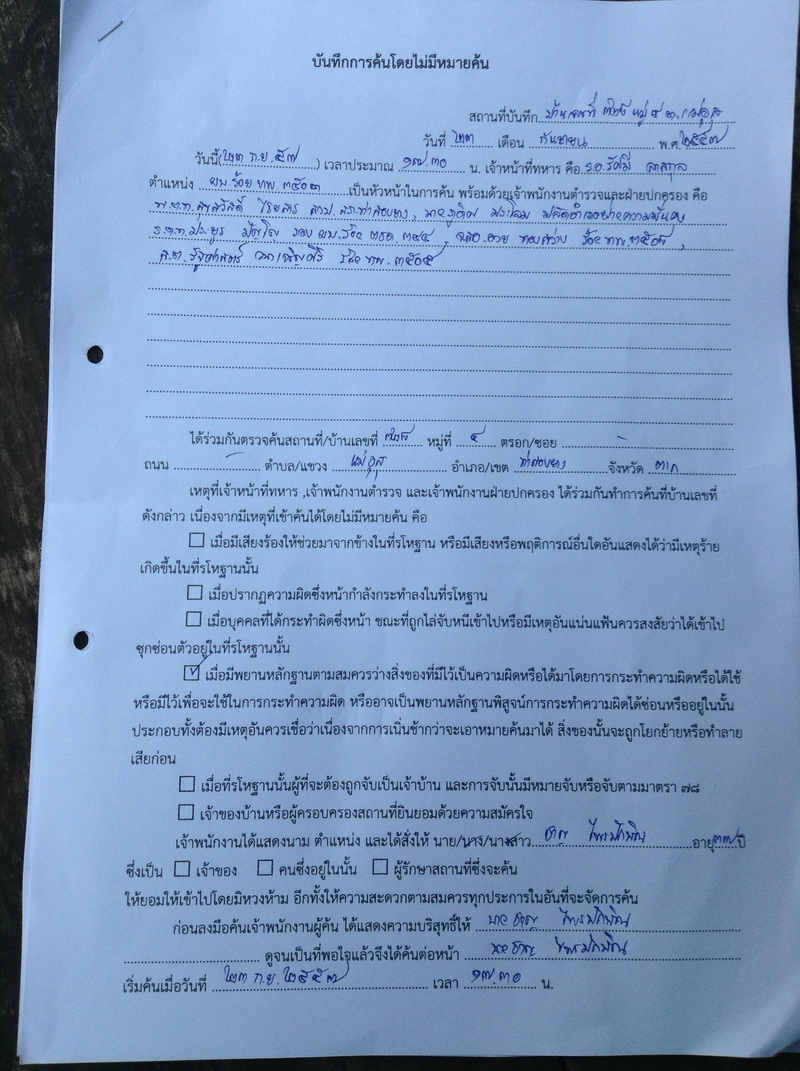 บันทึกการค้นโดยไม่มีหมายค้น
สถานที่บันทึก บ้านเลขที่ หมู่ ๔ ต.แม่อุสุ
วันที่ ๒๓ เดือน กันยายน พ.ศ. ๒๕๕๗
วันนี้(๒๓ ก.ย. ๕๗) เวลาประมาณ ๑๗.๓๐ น. เจ้าหน้าที่ทหาร คือ ร.อ.รัศมี
ตำแหน่ง ผบ.ร้อย ทพ.๓๕๐๓ เป็นหัวหน้าในการค้น พร้อมด้วยเจ้าพนักงานตำรวจและฝ่ายปกครอง คือ
พ.ต.ท. สวป. สภ.ท่าสองยาง, นาย ปลัดอำเภอฝ่ายความมั่นคง
ร.ต.ท.ประยูร รอง ผบ.ร้อย ตชด. ๓๔๔, จสอ. ทองสว่าง ร้อย ทพ.
ส.ต. ร้อย ทพ.
ได้ร่วมกันตรวจค้นสถานที่/บ้านเลขที่ หมู่ที่ ๔ ตรอก/ซอย -
ถนน - ตำบล/แขวง แม่อุสุ อำเภอ/เขต ท่าสองยาง จังหวัด ตาก
เหตุที่เจ้าหน้าที่ทหาร ,เจ้าพนักงานตำรวจ และเจ้าพนักงานฝ่ายปกครอง ได้ร่วมกันทำการค้นที่บ้านเลขที่
ดังกล่าว เนื่องจากมีเหตุที่เข้าค้นได้โดยไม่มีหมายค้น คือ
เมื่อมีเสียงร้องให้ช่วยมาจากข้างในที่รโหฐาน หรือมีเสียงหรือพฤติการณ์อื่นใดอันแสดงได้ว่ามีเหตุร้าย
เกิดขึ้นในที่รโหฐานนั้น
เมื่อปรากฏความผิดซึ่งหน้ากำลังกระทำลงในที่รโหฐาน
เมื่อบุคคลที่ได้กระทำผิดซึ่งหน้า ขณะที่ถูกไล่จับหนีเข้าไปหรือมีเหตุอันแน่นแฟ้นควรสงสัยว่าได้เข้าไป
ซุกซ่อนตัวอยู่ในที่รโหฐานนั้น
เมื่อมีพยานหลักฐานตามสมควรว่างสิ่งของที่มีไว้เป็นความผิดหรือได้มาโดยการกระทำความผิดหรือได้ใช้
หรือมีไว้เพื่อจะใช้ในการกระทำความผิด หรืออาจเป็นพยานหลักฐานพิสูจน์การกระทำความผิดได้ซ่อนหรืออยู่ในนั้น
ประกอบทั้งต้องมีเหตุอันควรเชื่อว่าเนื่องจากการเนิ่นช้ากว่าจะเอาหมายค้นมาได้ สิ่งของนั้นจะถูกโยกย้ายหรือทำลาย
เสียก่อน
เมื่อที่รโหฐานนั้นผู้ที่จะต้องถูกจับเป็นเจ้าบ้าน และการจับนั้นมีหมายจับหรือจับตามมาตรา ๗๘
เจ้าของบ้านหรือผู้ครอบครองสถานที่ยินยอมด้วยความสมัครใจ
เจ้าพนักงานได้แสดงนาม ตำแหน่ง และได้สั่งให้ นาย/นาง/นางสาว ไพรมักพิน อายุ ๓๗ ปี
ซึ่งเป็น เจ้าของ คนซึ่งอยู่ในนั้น ผู้รักษาสถานที่ซึ่งจะค้น
ให้ยอมให้เข้าไปโดยมิหวงห้าม อีกทั้งให้ความสะดวกตามสมควรทุกประการในอันที่จะจัดการค้น
ก่อนลงมือค้นเจ้าพนักงานผู้ค้น ได้แสดงความบริสุทธิ์ให้ นาย
ดูจนเป็นที่พอใจแล้วจึงได้ค้นต่อหน้า นาย
เริ่มค้นเมื่อวันที่ ๒๓ ก.ย. ๒๕๕๗ เวลา ๑๗.๓๐ น.